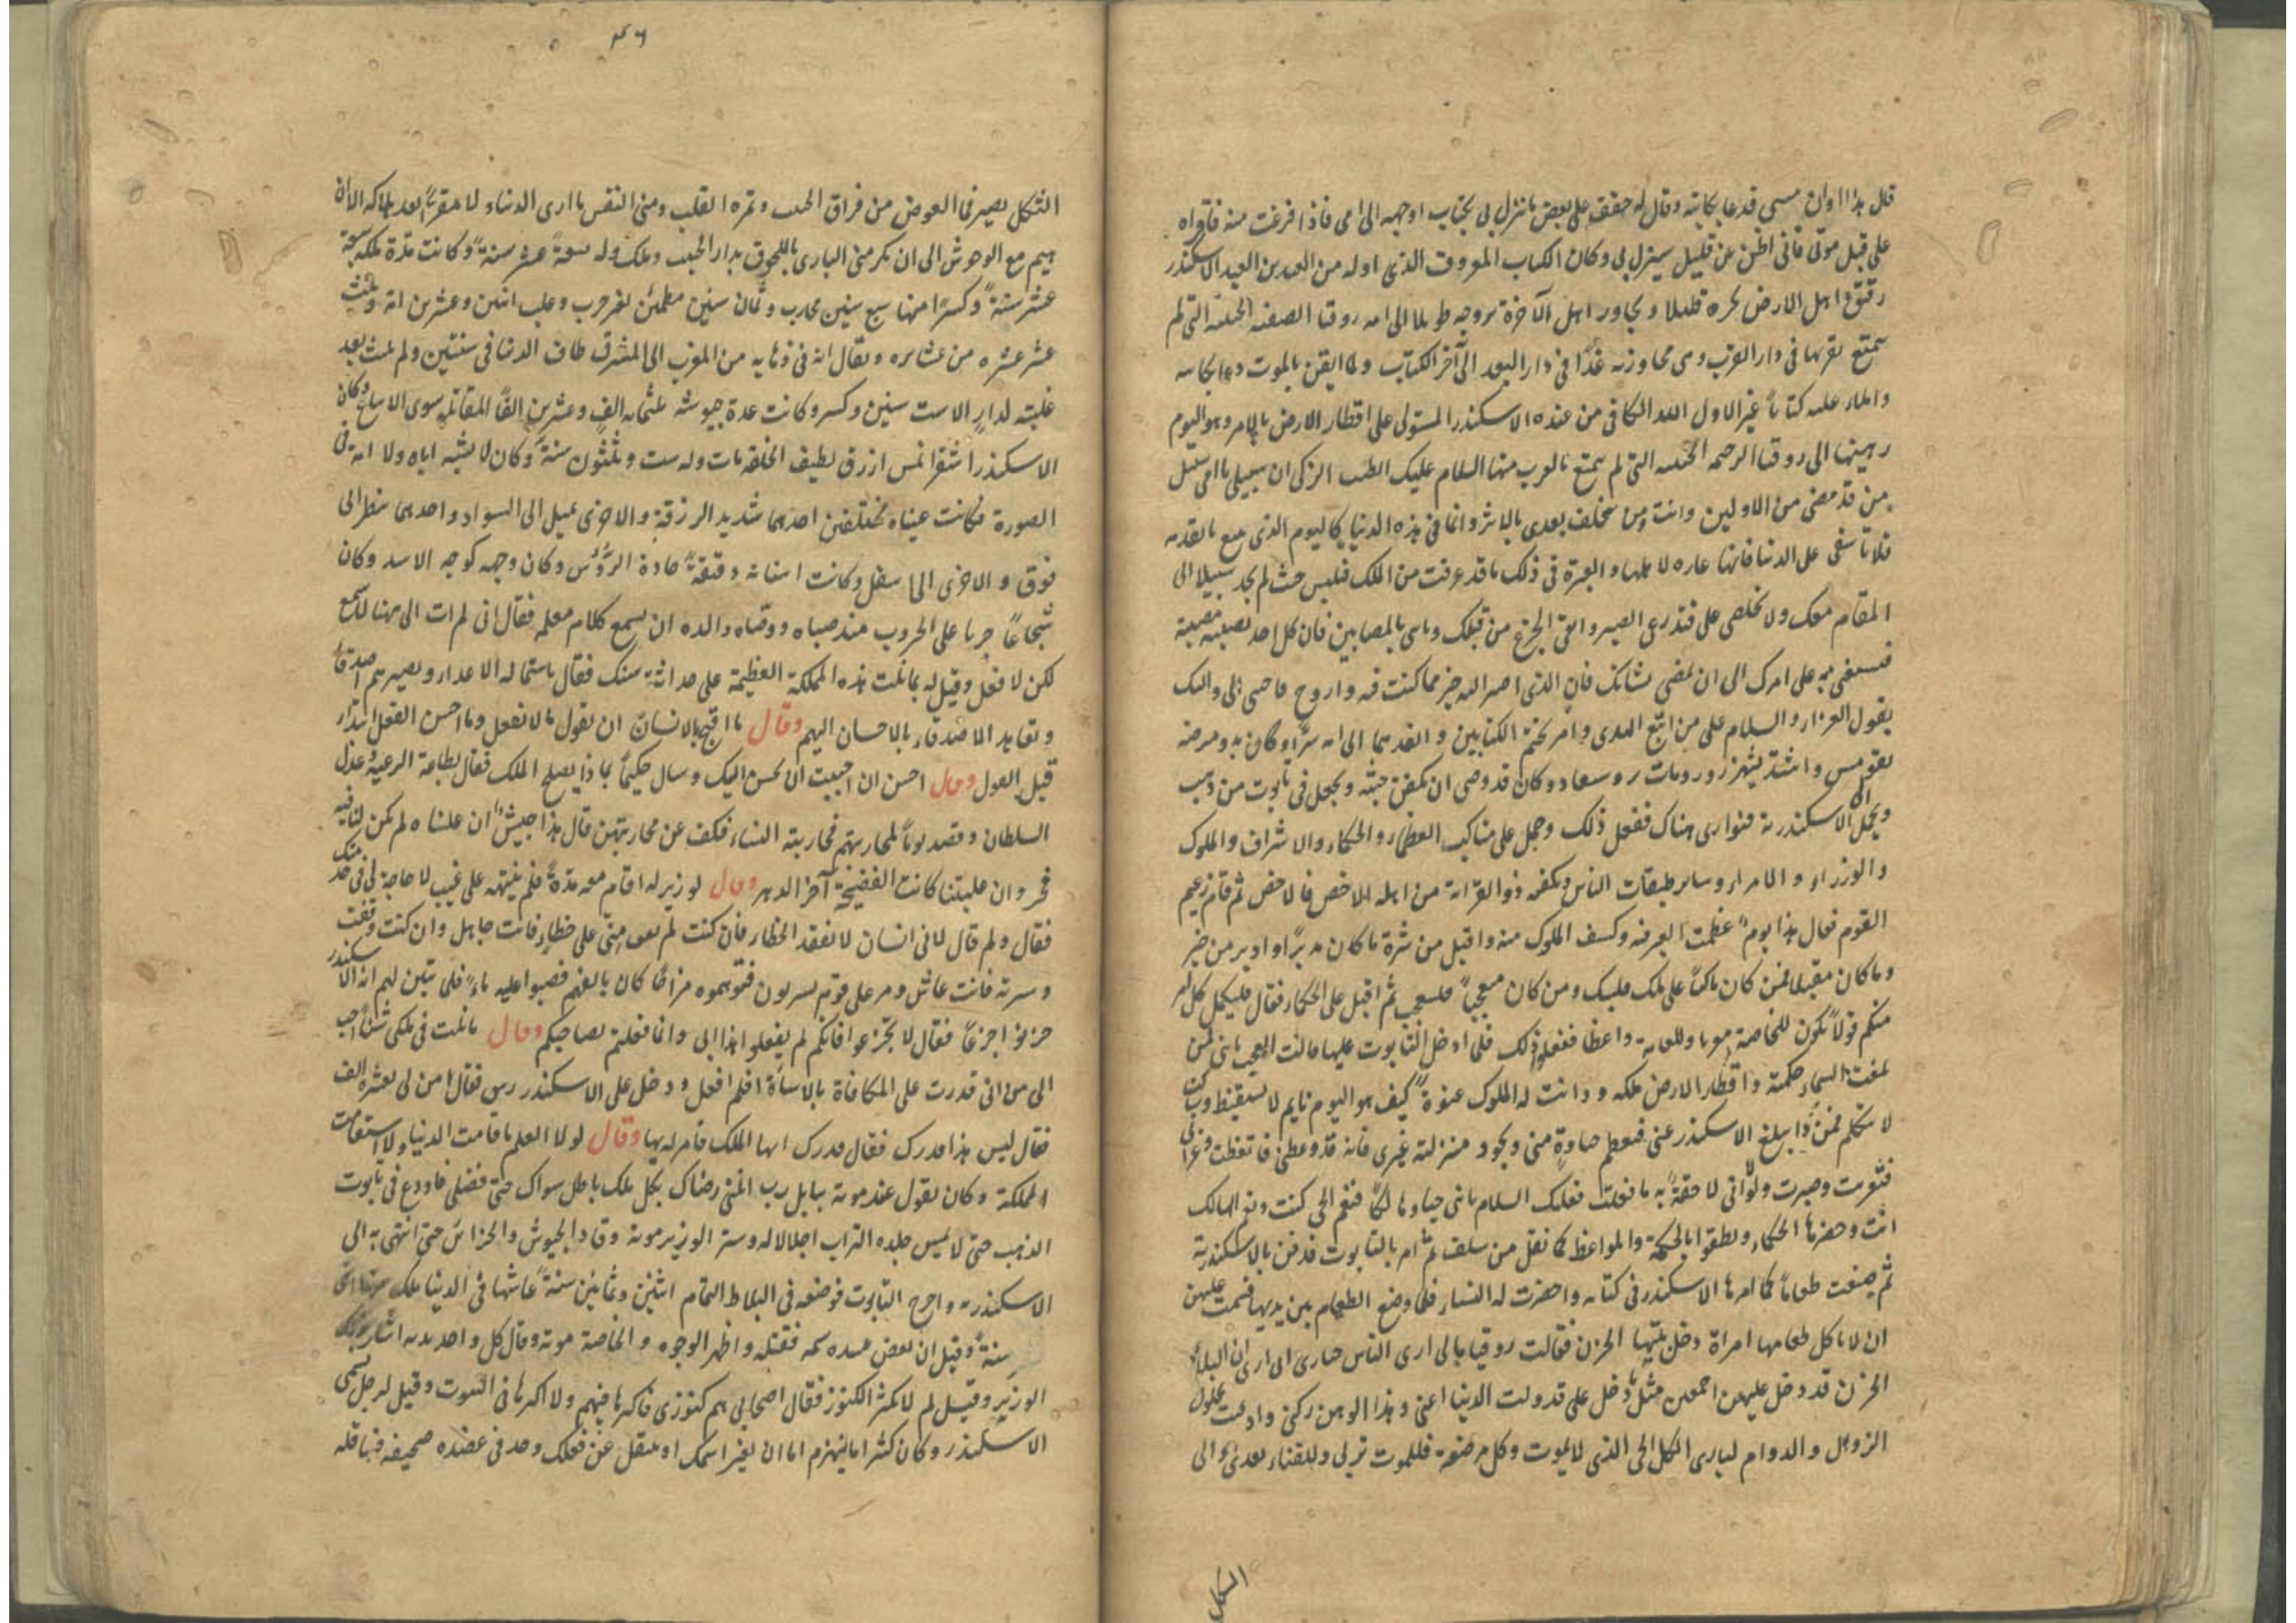 قال هذا اوان مسى قدعا بكاتبه وقال له خفف على بعض ما نزل بى بكتاب اوجهه الى امى فاذا فرغت منه فاقراه
على قبل موتى فانى اظن عن قليل سينزل بى وكان الكتاب المعروف الذى اوله من العبد بن العبد الاسكندر
رفيق اهل الارض بجسده قليلا ومجاور اهل الآخرة بروحه طويلا الى امه روقيا الصفية الحبيبة التى لم
يتمتع بقربها فى دار القرب وهى مجاورته غدًا فى دار البعد الى آخر الكتاب ولما ايقن بالموت دعا بكاتبه
واملاء عليه كتابًا غير الاول العبد الكافى من عنده الاسكندر المستولى على اقطار الارض بالامر وهو اليوم
رهينها الى روقيا الرحمه الحبيبه التى لم يتمتع بالقرب منها السلام عليك الطيب الزكى ان سبيلى يا امى سبيل
من قد مضى من الاولين وانت ومن تخلف بعدى بالاثر وانما فى هذه الدنيا كاليوم الذى يتبع ما تقدمه
فلا تاسفى على الدنيا فانها غاره لاهلها والعبرة فى ذلك ما قد عرفت من الملك فيلبس حيث لم يجد سبيلا الى
المقام معك ولا تخلصى على فتدرعى الصبر وانفى الجزع من قبلك وتاسى بالمصابين فان كل احد تصيبه مصيبة
على امرك الى ان تمضى بشانك فان الذى اصير اليه خير مما كنت فيه واروح فاحسنى الى واليك
بقبول العزاء والسلام على من اتبع الهدى وامر بختم الكتابين وانفذهما الى امه سرًا وكان بدو مرضه
بقومس واشتد بشهرزور ومات وكان قد وصى ان يكفن جثته ويجعل فى تابوت من ذهب
ويحمل الى الاسكندرية فيوارى هناك ففعل ذلك وحمل على مناكب العظماء والحكماء والاشراف والملوك
والوزراء والامراء وساير طبقات الناس ذو القرابة من اهله الاخص فالاخص ثم قام زعيم
القوم فقال هذا يوم عظمت العبرة فيه وكسف الملوك منه واقبل من شره ما كان مدبرًا وادبر من خير
وما كان مقبلا فمن كان باكيًا على ملك فليبك ومن كان معجبًا فليعجب ثم اقبل على الحكماء فقال فليكمل كل امر
منكم قولًا يكون للخاصة معزيا وللعامه واعظا ففعلوا ذلك فلما ادخل التابوت عليها قالت العجب يا بنى لمن
بلغت السماء حكمته واقطار الارض ملكه ودانت له الملوك عنوةً كيف هو اليوم نايم لا يستيقظ وساكت
لا يتكلم فمن ذا يبلغ الاسكندر عنى فيعظم حباوه منى ويجود منزلته غيرى فانه قد وعظنى فاتعظت وعزانى
فتعزيت وصبرت ولولا انى لاحقةً به ما فعلت فعليك السلام يا بنى حيا وهالكًا فنعم الحى كنت ونعم الهالك
انت وحضرها الحكماء ونطقوا بالحكمة والمواعظ كما نقل من سلف ثم امر بالتابوت فدفن بالاسكندرية
ثم صنعت طعامًا كما امرها الاسكندر فى كتابه واحضرت له النساء فلما وضع الطعام بين يديها اقسمت عليهن
ان لا ياكل طعامها امراة دخل بيتها الحزن فقالت روقيا مالى ارى الناس حيارى اى ارى ان البلاء
الحزن قد دخل عليهن اجمعين مثل ما دخل على قد ولت الدنيا عنى وهذا الوهن ركنى وادعت بحلول
الزوال والدوام لبارى الكل الحى الذى لا يموت وكل مرضعة فللموت تربى وللفناء تغدى والى
الثكل
٤٦
الثكل يصير فى العوض من فراق الحبيب وثمرة القلب ومنى النفس ما ارى الدنيا لا مقرًا بعد هلاكه الا ان
يهيم مع الوحوش الى ان يكرمنى البارى باللحوق بدار الحبيب وملك وله تسعة عشر سنة وكانت مدة ملكه سبعة
عشر سنةً وكسرًا منها سبع سنين محارب وثمان سنين مطمئن لغير حرب وغلب اثنين وعشرين امة وثلث
عشر عشيره من عشايره ويقال انه فى ذهابه من المغرب الى المشرق طاف الدنيا فى سنتين ولم يلبث بعد
غلبته لدارا الا ست سنين وكسر وكانت عدة جيوشه ثلثمايه الف وعشرين الفًا المقاتله سوى الاتباع وكان
الاسكندر اشقر انمش ازرق لطيف الخلقه مات وله ست وثلثون سنةً وكان لا يشبه اباه ولا امه فى
الصورة فكانت عيناه مختلفتين احديهما شديد الزرقة والاخرى يميل الى السواد واحديهما ينظر الى
فوق والاخرى الى اسفل وكانت اسنانه دقيقةً حادة الرؤس وكان وجهه كوجه الاسد وكان
شجاعًا جريا على الحروب منذ صباه ووصاه والده ان يسمع كلام معلمه فقال انى لم ات الى هنا لاسمع
لكن لافعل وقيل له بما نلت هذه المملكة العظيمة على حداثة سنك فقال باستمالة الاعداء وتصييرهم اصدقاءً
وتعاهد الاصدقاء بالاحسان اليهم وقال ما اقبح بالانسان ان يقول مالا يفعل وما احسن الفعل ابتداء
قبل القول وقال احسن ان احببت ان يحسن اليك وسال حكيمًا بماذا يصلح الملك فقال بطاعة الرعية وعدل
السلطان وقصد يومًا لمحاربتهم فحاربته النساء فكف عن محاربتهن قال هذا جيشٌ ان غلبناه لم يكن لنا فيه
فخر وان غلبنا كانت الفضيحة آخر الدهر وقال لوزير له اقام معه مدةً فلم ينبهه على عيب لا حاجة لى فى خدمتك
فقال ولم قال لانى انسان لا يفقد الخطاء فان كنت لم تقف منى على خطاء فانت جاهل وان كنت وقفت
وسترته فانت غاش ومر على قوم يشربون فتوهموه مزاحًا كان يالفهم فصبوا عليه ماءً فلما تبين لهم انه الاسكندر
حزنوا جزعًا فقال لا تجزعوا فانكم لم تفعلوا هذا بى وانما فعلتم بصاحبكم وقال ما نلت فى ملكى شيئًا احب
الى من انى قدرت على المكافاة بالاساءة فلم افعل ودخل على الاسكندر رجل فقال من لى بعشرة الف
فقال ليس هذا قدرك فقال قدرك ايها الملك فامر له بها وقال لولا العلم ما قامت الدنيا ولا استقامت
المملكة وكان يقول عند موته ببابل رب امتنى رضاك بكل ملك باطل سواك حتى قضى فاودع فى تابوت
الذهب حتى لا يمس جلده التراب اجلالا له وستر الوزير موته وقاد الجيوش والخزائن حتى انتهى به الى
الاسكندريه واخرج التابوت فوضعه فى البلاط التمام اثنين وثمانين سنةً عاشها فى الدنيا ملك منها اثنى
سنةً وقيل ان بعض عبيده سمه فقتله واظهر الوجوه والخاصة موته وقال كل واحد بدبه اشار بذلك
الوزير وقيل لم لا تكثر الكنوز فقال اصحابى هم كنوزى فاكنزها فيهم ولا اكنزها فى البيوت وقيل لرجل يسمى
الاسكندر وكان كثيرًا ما ينهزم اما ان تغير اسمك او تنتقل عن فعلك وجد فى عضده صحيفه فيها قلة